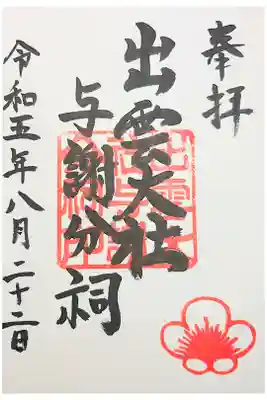 奉拝
出雲大社
与謝分祠
令和五年八月二十二日